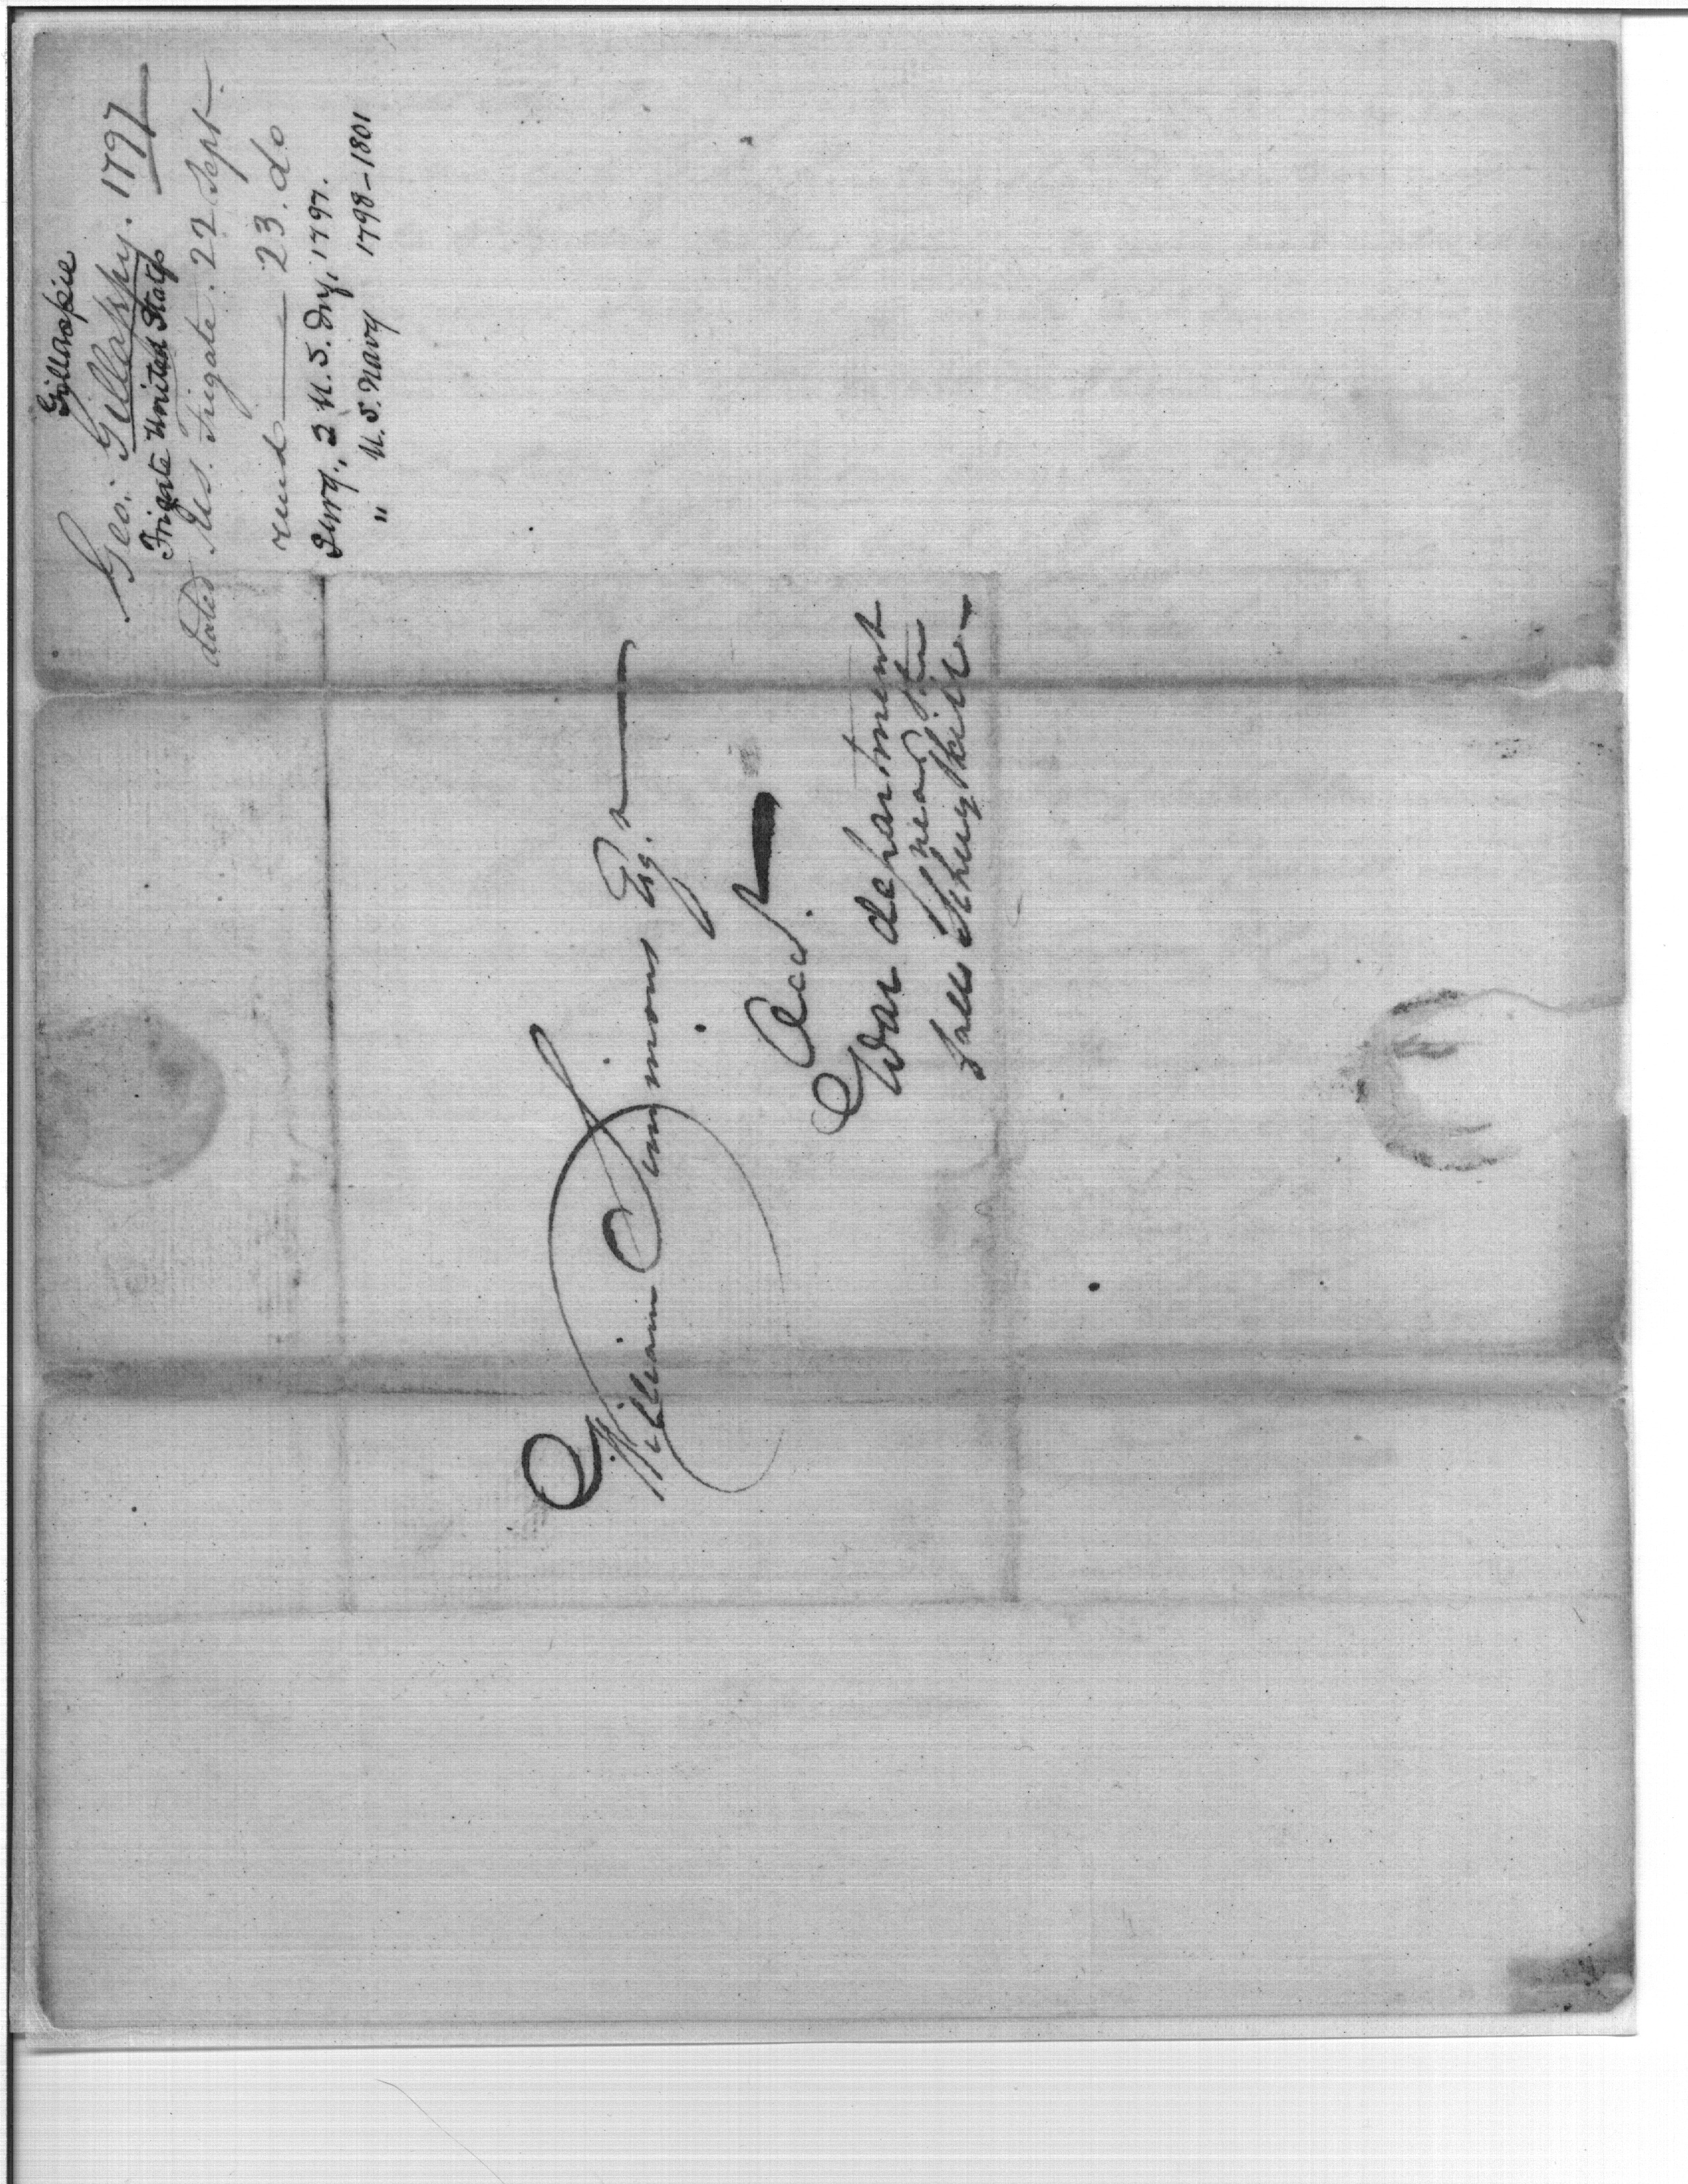 Gillaspie
Geo: Gillaspy. 1797
Frigate United States
dated U.S. Frigate. 22 Sept.
recd 23. do
Surg., 2 U.S. Inf., 1797.
" U.S. Navy 1798-1801
William Simmons Esq.r
Acct.
War department
near the
Falls Schuylkill